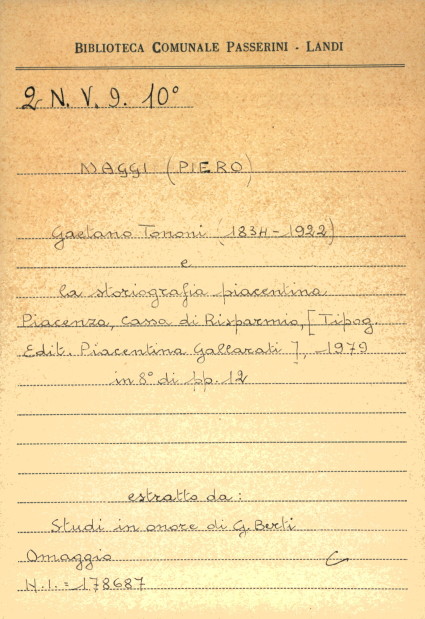 BIBLIOTECA COMUNALE PASSERINI - LANDI
2 N. V. 9. 10°
MAGGI (PIERO)
Gaetano Tononi (1834-1922)
e
la storiografia piacentina
Piacenza, Cassa di Risparmio, [Tipog.
Edit. Piacentina Gallarati], 1979
in 8° di pp. 12
estratto da:
Studi in onore di G. Berti
Omaggio
N.I. = 178687